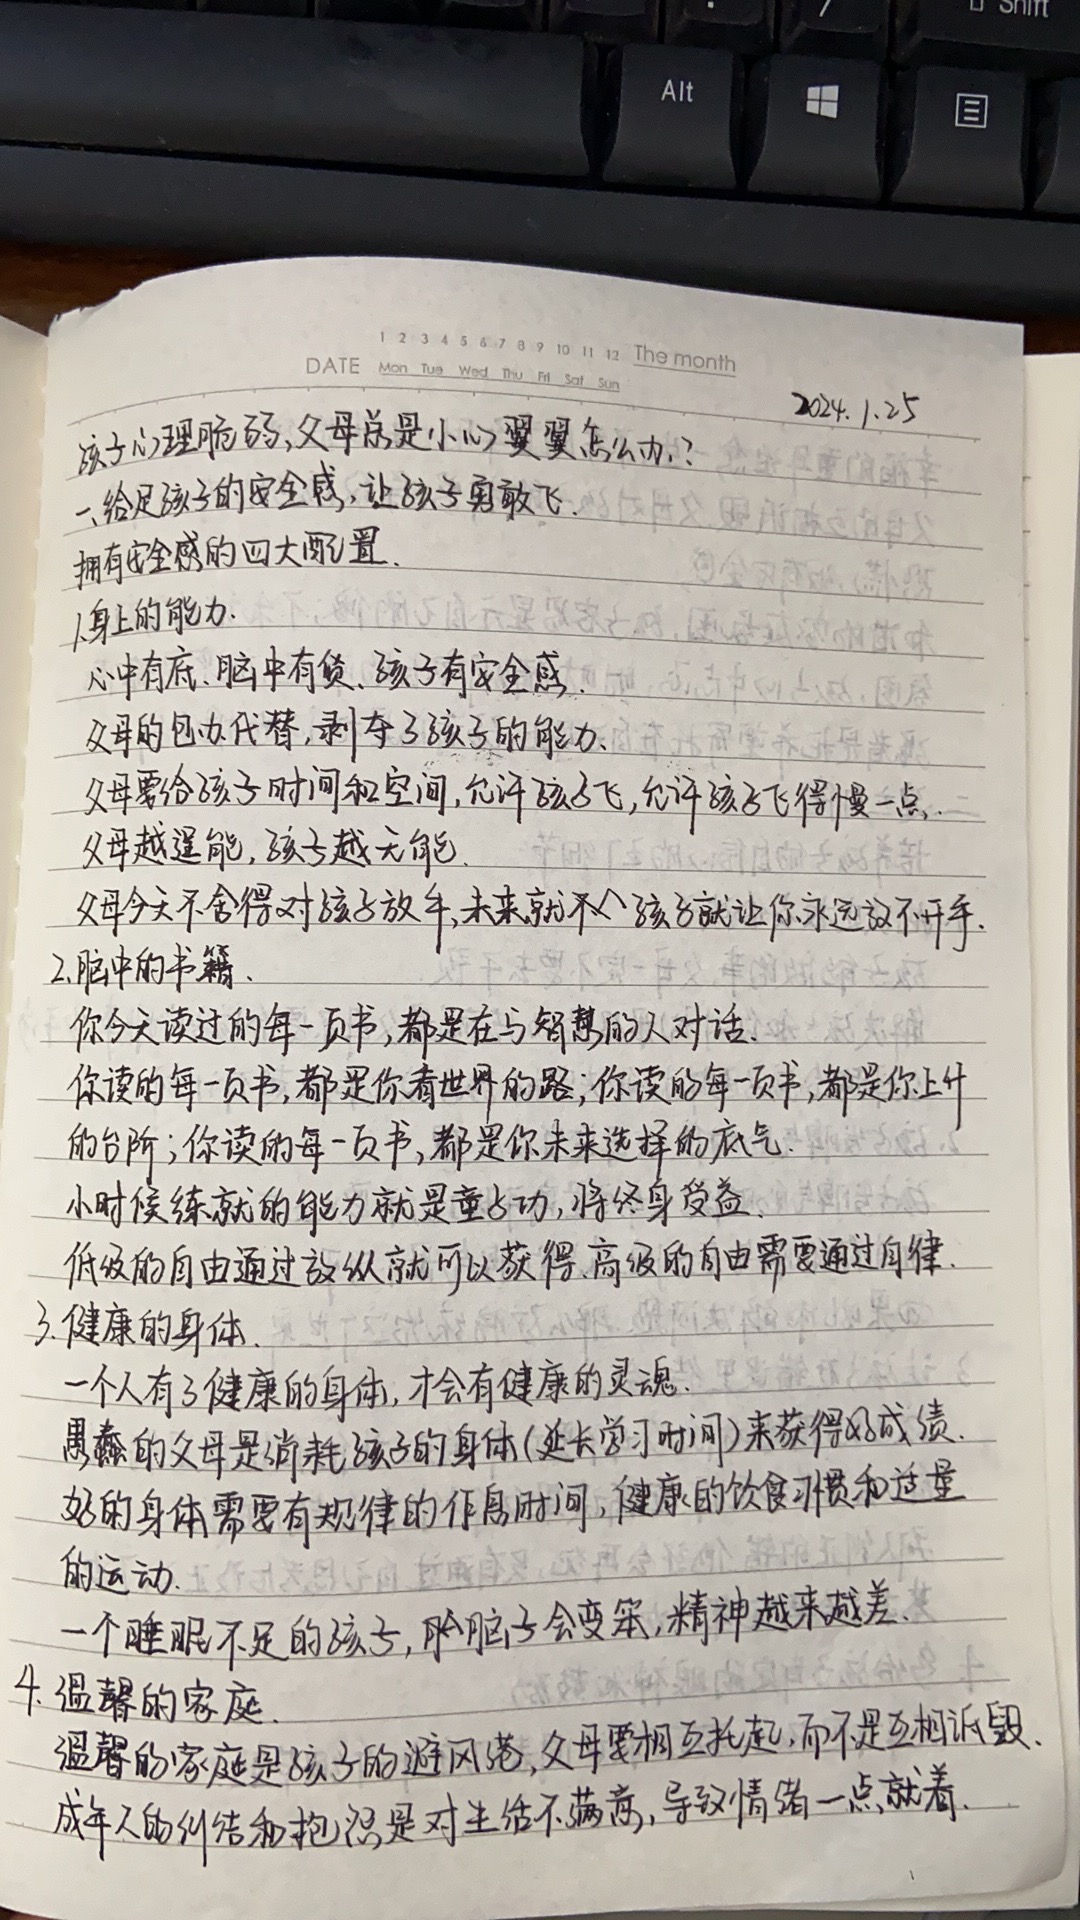 Shift
Alt
1 2 3 4 5 6 7 8 9 10 11 12 The month
DATE Mon Tue Wed Thu Fri Sat Sun
2024.1.25
孩子心理脆弱,父母总是小心翼翼怎么办?
一、给足孩子的安全感,让孩子勇敢飞.
拥有安全感的四大配置.
1.身上的能力.
心中有底、脑中有货、孩子有安全感.
父母的包办代替,剥夺了孩子的能力.
父母要给孩子时间和空间,允许孩子飞,允许孩子飞得慢一点.
父母越逞能,孩子越无能.
父母今天不舍得对孩子放手,未来就不 孩子就让你永远放不开手.
2.脑中的书籍.
你今天读过的每一页书,都是在与智慧的人对话.
你读的每一页书,都是你看世界的路;你读的每一页书,都是你上升
的台阶;你读的每一页书,都是你未来选择的底气.
小时候练就的能力就是童子功,将终身受益.
低级的自由通过放纵就可以获得.高级的自由需要通过自律.
3.健康的身体.
一个人有了健康的身体,才会有健康的灵魂.
愚蠢的父母是消耗孩子的身体(延长学习时间)来获得好成绩.
好的身体需要有规律的作息时间,健康的饮食习惯和适量
的运动.
一个睡眠不足的孩子, 脑子会变笨,精神越来越差.
4.温馨的家庭.
温馨的家庭是孩子的避风港,父母要相互托起,而不是互相诋毁.
成年人的纠结和抱怨是对生活不满意,导致情绪一点就着.